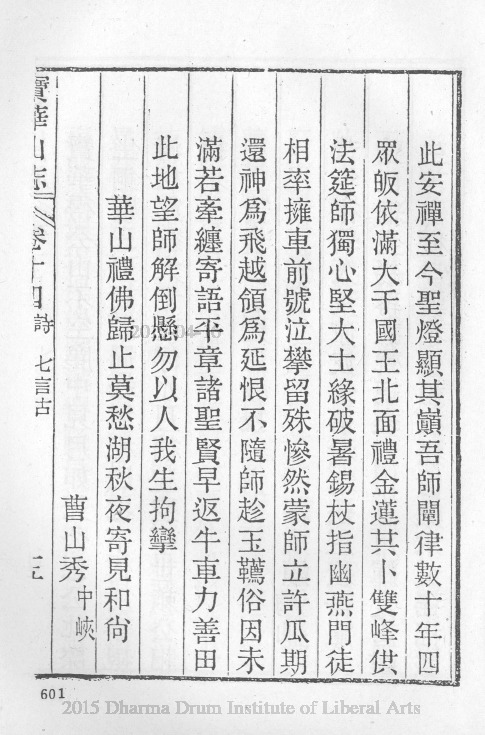 此安禪至今聖燈顯其巔吾師闡律數十年四
眾皈依滿大千國王北面禮金蓮共卜雙峰供
法筵師獨心堅大士緣破暑錫杖指幽燕門徒
相率擁車前號泣攀留殊慘然蒙師立許瓜期
還神爲飛越領爲延恨不隨師趁玉韉俗因未
滿若牽纏寄語平章諸聖賢早返牛車力善田
此地望師解倒懸勿以人我生拘攣
華山禮佛歸止莫愁湖秋夜寄見和尚
曹山秀中峽
寶華山志 卷十四詩 七言古
601
2015 Dharma Drum Institute of Liberal Arts